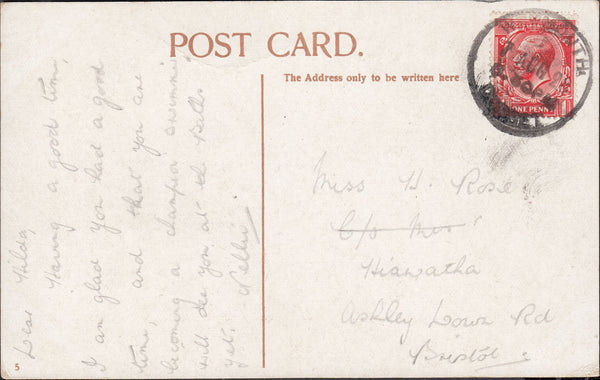 POST CARD.
The Address only to be written here
ONE PENNY
Dear Hilda,
Having a good time,
I am glad you had a good
time, and that you are
becoming a champion swimmer
will see you at the Baths
yet. Nellie.
Miss H. Rose
C/o Mrs
Hiawatha
Ashley Down Rd
Bristol.
5